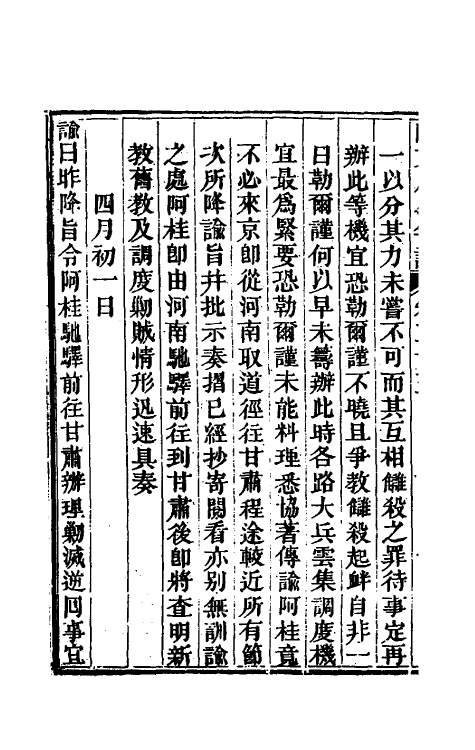 一以分其力未嘗不可而其互相讎殺之罪待事定再
辦此等機宜恐勒爾謹不曉且爭教讎殺起衅自非一
日勒爾謹何以早未籌辦此時各路大兵雲集調度機
宜最爲緊要恐勒爾謹未能料理悉協著傳諭阿桂竟
不必來京卽從河南取道徑往甘肅程途較近所有節
次所降諭旨并批示奏摺已經抄寄閱看亦别無訓諭
之處阿桂卽由河南馳驛前往到甘肅後卽將查明新
教舊教及調度勦賊情形迅速具奏
四月初一日
諭曰昨降旨令阿桂馳驛前往甘肅辦理勦滅逆回事宜